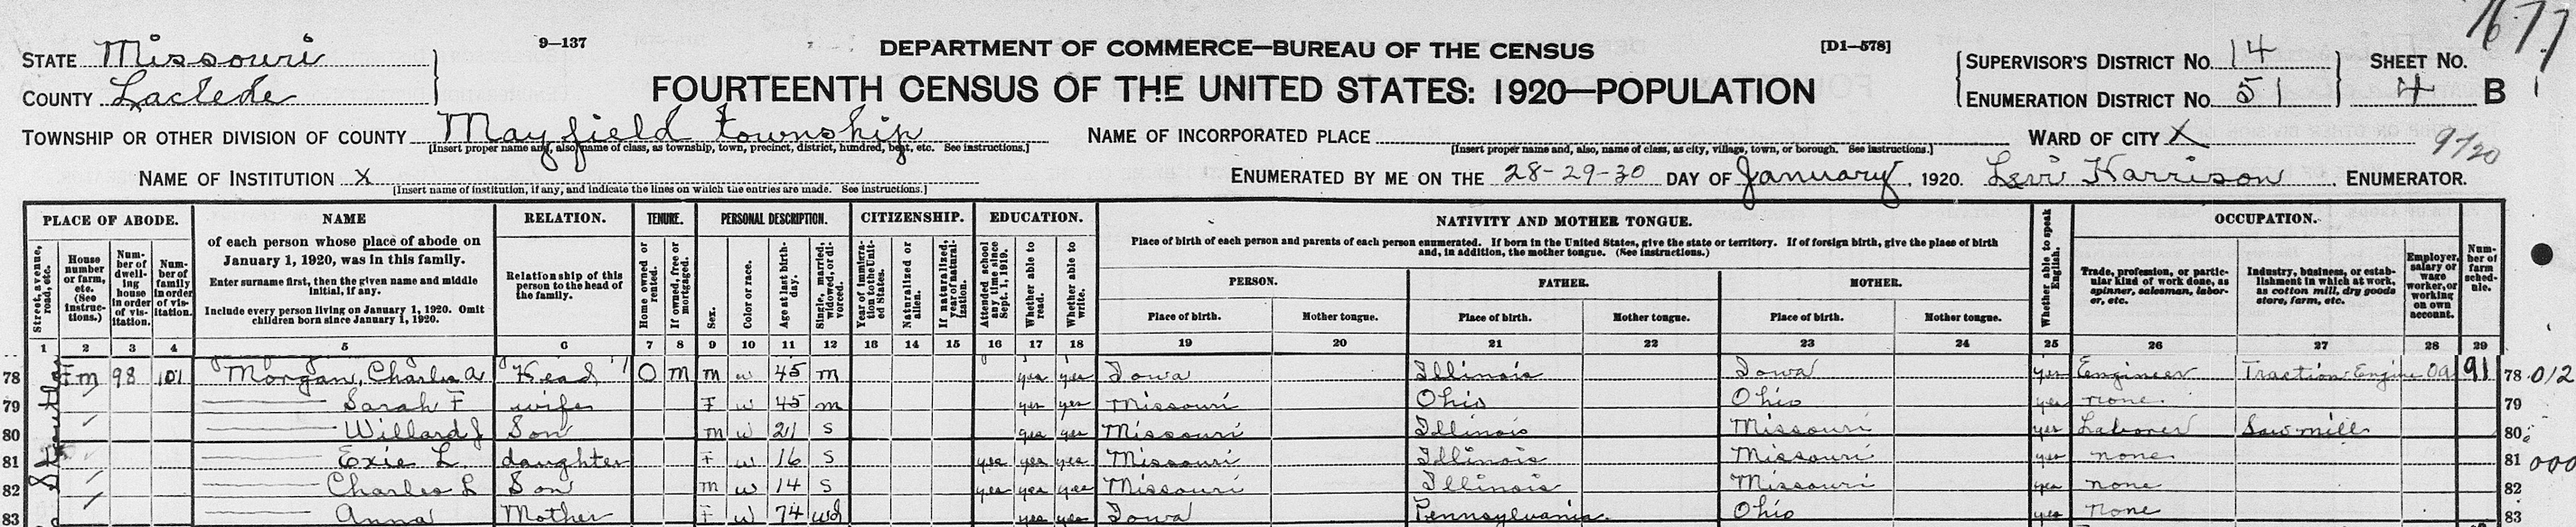 1677
STATE Missouri
9—137
DEPARTMENT OF COMMERCE—BUREAU OF THE CENSUS
[D1—578]
SUPERVISOR'S DISTRICT NO. 14 SHEET NO.
COUNTY Laclede
FOURTEENTH CENSUS OF THE UNITED STATES: 1920—POPULATION
ENUMERATION DISTRICT NO. 51 4 B
TOWNSHIP OR OTHER DIVISION OF COUNTY Mayfield township
NAME OF INCORPORATED PLACE
WARD OF CITY X
[Insert proper name and, also, name of class, as township, town, precinct, district, hundred, beat, etc. See instructions.]
[Insert proper name and, also, name of class, as city, village, town, or borough. See instructions.]
9/20
NAME OF INSTITUTION X
ENUMERATED BY ME ON THE 28-29-30 DAY OF January, 1920. Levi Harrison, ENUMERATOR.
[Insert name of institution, if any, and indicate the lines on which the entries are made. See instructions.]
PLACE OF ABODE. NAME RELATION. TENURE. PERSONAL DESCRIPTION. CITIZENSHIP. EDUCATION. NATIVITY AND MOTHER TONGUE. OCCUPATION.
Street, avenue, road, etc.
House number or farm, etc. (See instructions.)
Number of dwelling house in order of visitation.
Number of family in order of visitation.
of each person whose place of abode on January 1, 1920, was in this family.
Enter surname first, then the given name and middle initial, if any.
Include every person living on January 1, 1920. Omit children born since January 1, 1920.
Relationship of this person to the head of the family.
Home owned or rented.
If owned, free or mortgaged.
Sex.
Color or race.
Age at last birthday.
Single, married, widowed, or divorced.
Year of immigration to the United States.
Naturalized or alien.
If naturalized, year of naturalization.
Attended school any time since Sept. 1, 1919.
Whether able to read.
Whether able to write.
Place of birth of each person and parents of each person enumerated. If born in the United States, give the state or territory. If of foreign birth, give the place of birth and, in addition, the mother tongue. (See instructions.)
PERSON. FATHER. MOTHER.
Place of birth. Mother tongue. Place of birth. Mother tongue. Place of birth. Mother tongue.
Whether able to speak English.
Trade, profession, or particular kind of work done, as spinner, salesman, laborer, etc.
Industry, business, or establishment in which at work, as cotton mill, dry goods store, farm, etc.
Employer, salary or wage worker, or working on own account.
Number of farm schedule.
1 2 3 4 5 6 7 8 9 10 11 12 13 14 15 16 17 18 19 20 21 22 23 24 25 26 27 28 29
78 Fm 98 101 Morgan, Charles A Head 1 O m m w 45 m yes yes Iowa Illinois Iowa yes Engineer Traction Engine OA 91 78 012
79 Sarah F wife F w 45 m yes yes Missouri Ohio Ohio yes none 79
80 Willard J Son m w 21 s yes yes Missouri Illinois Missouri yes Laborer Saw mill 80
81 Exie L daughter F w 16 s yes yes yes Missouri Illinois Missouri yes none 81 000
82 Charles L Son m w 14 s yes yes yes Missouri Illinois Missouri yes none 82
83 Anna Mother F w 74 wd yes yes Iowa Pennsylvania Ohio yes none 83